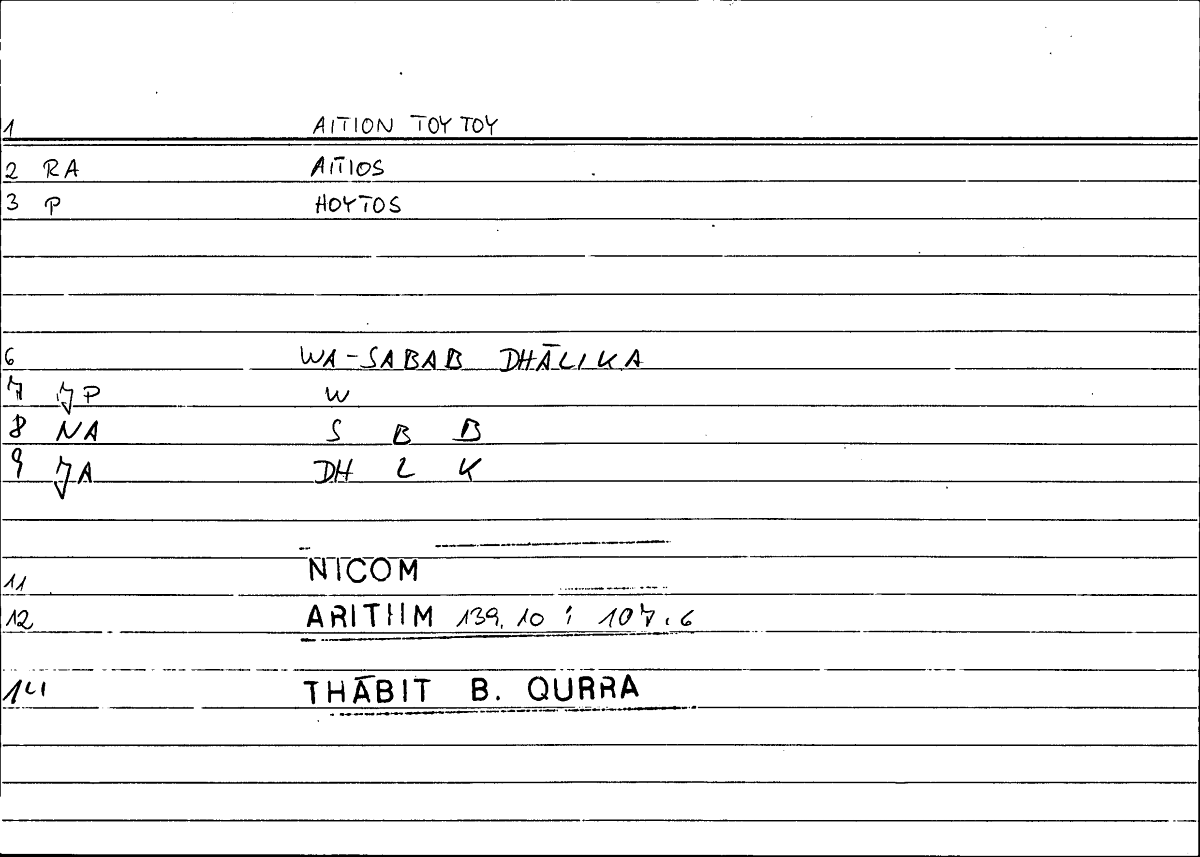 1 AITION TOYTOY
2 RA AITIOS
3 P HOYTOS
6 WA-SABAB DHĀLIKA
7 JP W
8 NA S B B
9 JA DH L K
11 NICOM
12 ARITHM 139.10 : 107.6
14 THĀBIT B. QURRA